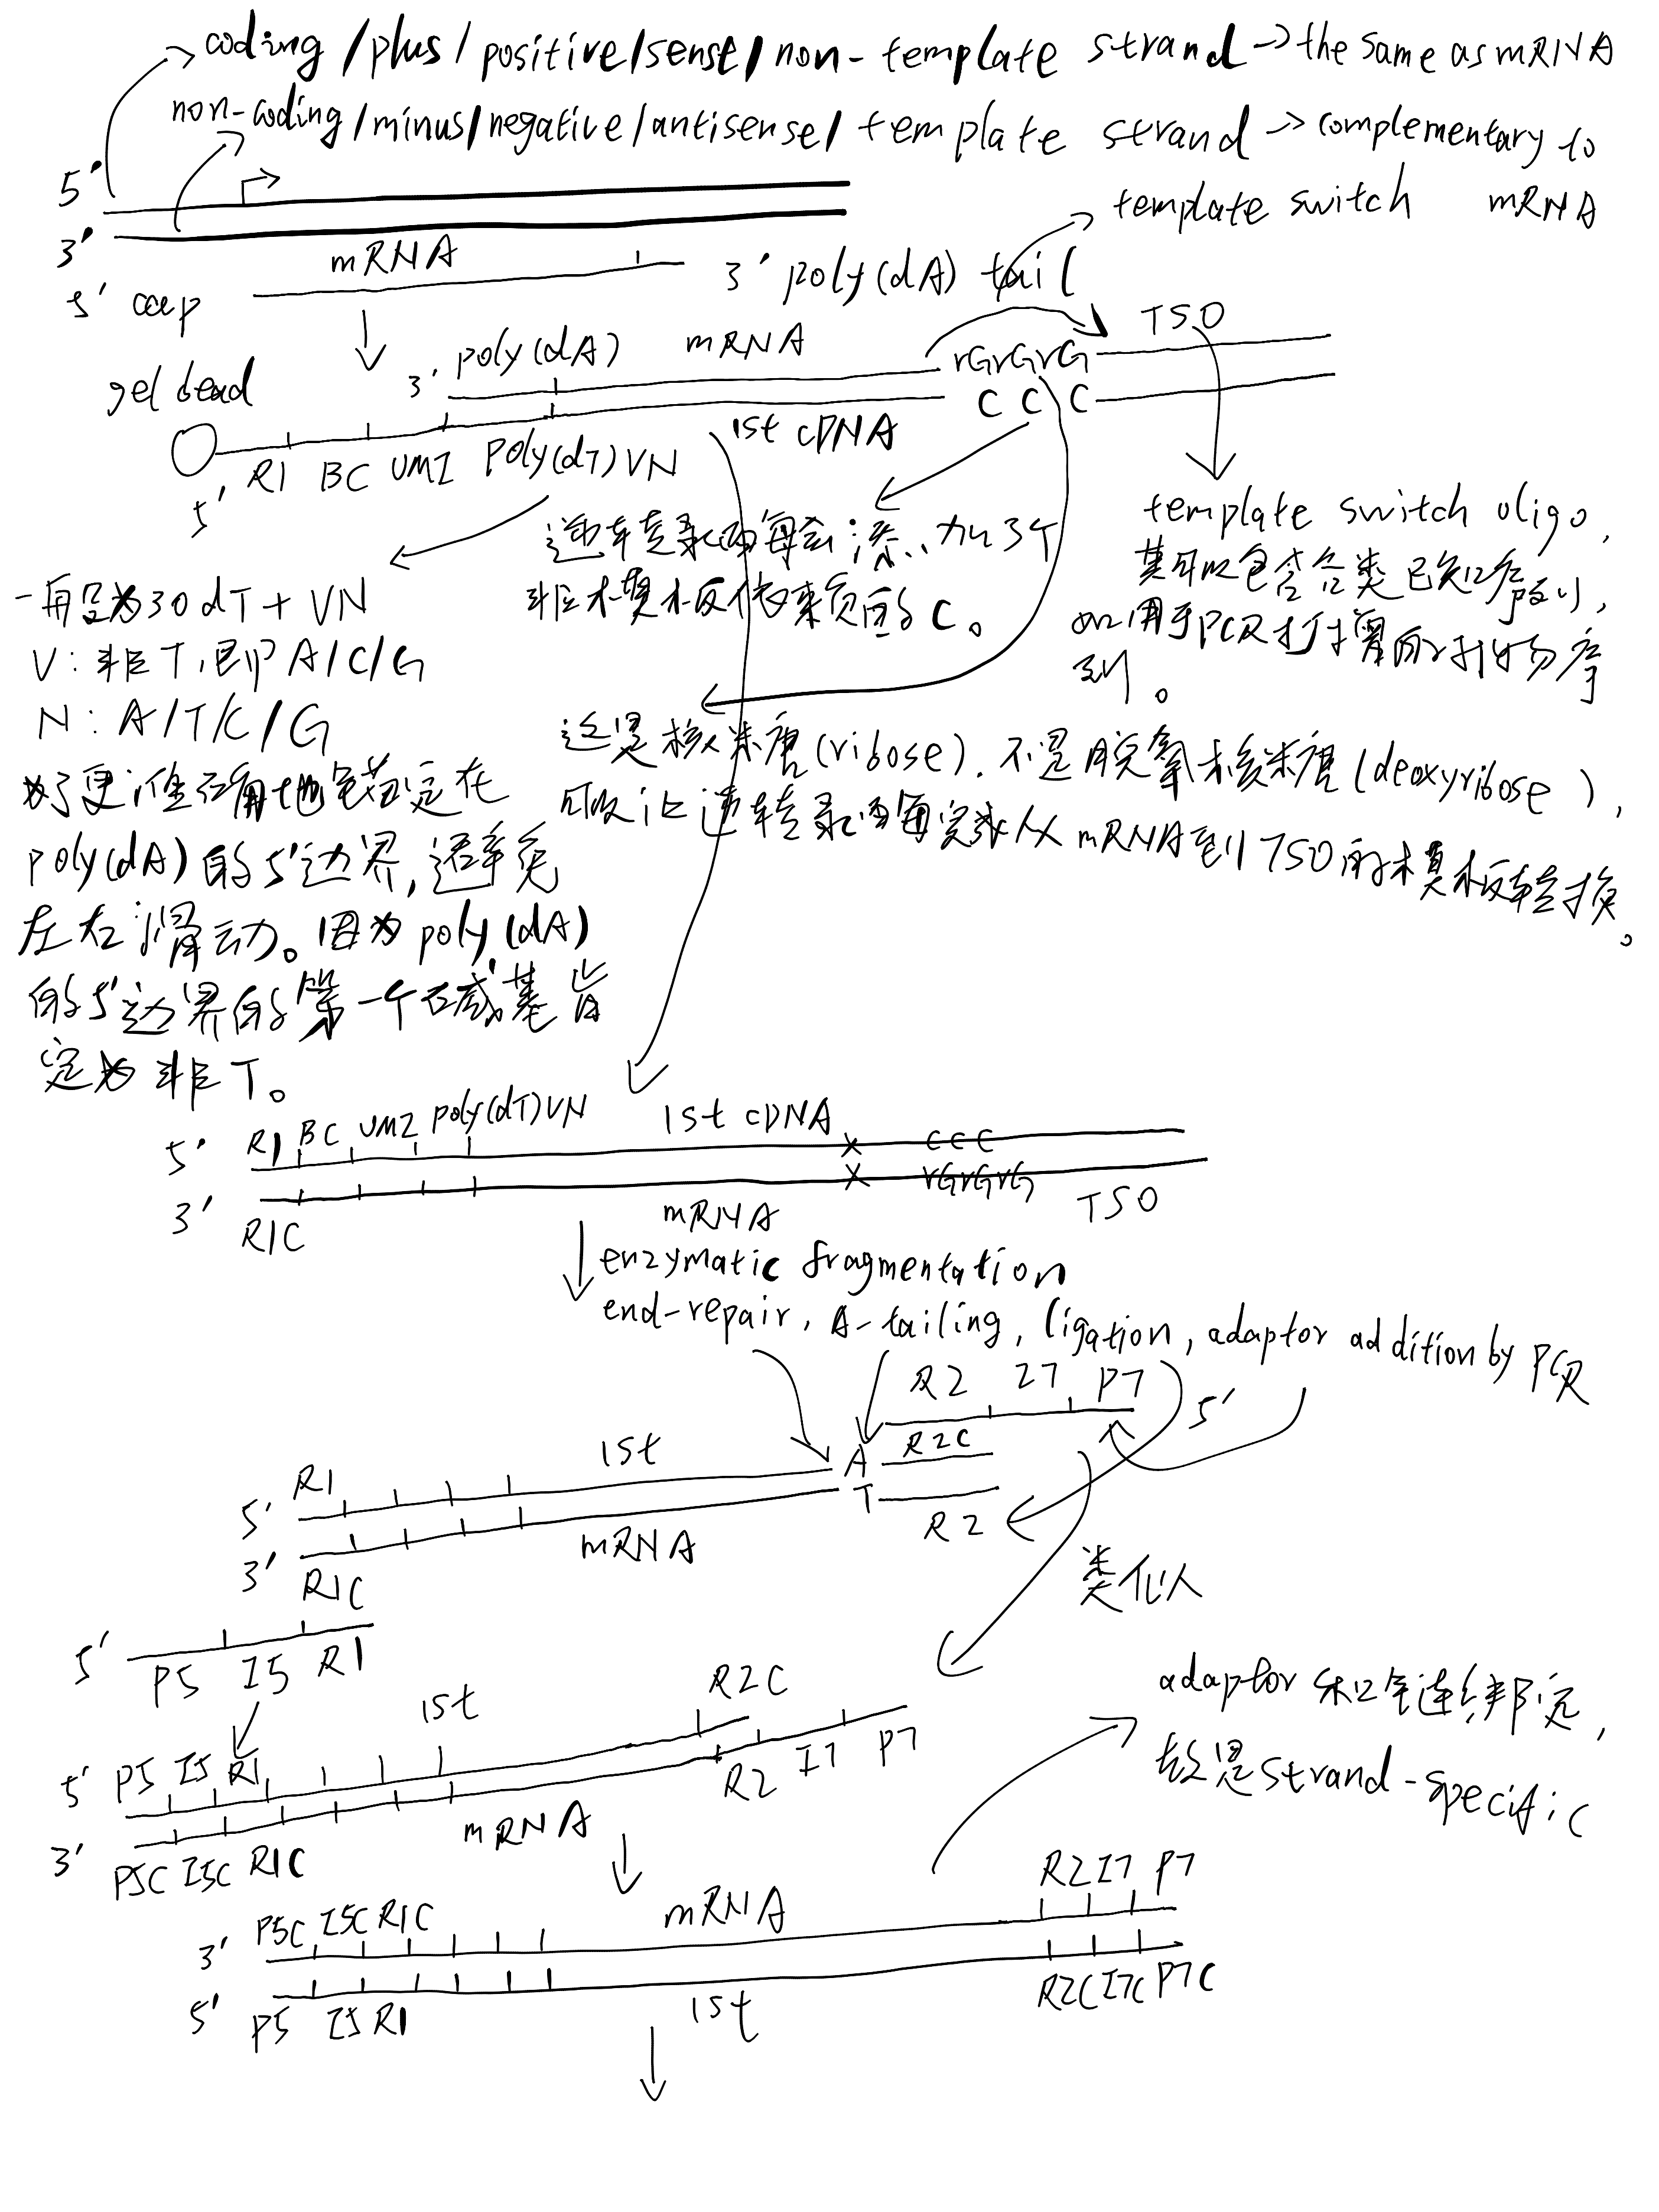 coding/plus/positive/sense/non-template strand→the same as mRNA
non-coding/minus/negative/antisense/template strand→complementary to
mRNA
5'
3'
template switch
mRNA
5' cap
3' poly(dA) tail
TSO
gel bead
3' poly(dA) mRNA rGrGrG
C C C
1st cDNA
R1 BC UMI poly(dT)VN
5'
template switch oligo,
其可以包含各类已知序列,
如用于PCR扩增的引物序
列。
逆转录酶每会添加3个
非模板依赖的C。
一般为30dT+VN
V:非T,即A/C/G
N:A/T/C/G
为了更准确地锚定在
poly(dA)的5'边界,避免
左右滑动。因为poly(dA)
的5'边界的第一个碱基肯
定为非T。
这是核糖(ribose),不是脱氧核糖(deoxyribose),
可以让逆转录酶完成从mRNA到TSO的模板转换。
5' R1 BC UMI poly(dT)VN 1st cDNA CCC
3' R1C mRNA rGrGrG TSO
enzymatic fragmentation
end-repair, A-tailing, ligation, adaptor addition by PCR
R2 I7 P7 5'
R2C
5' R1 1st A
3' R1C mRNA T R2
类似
5' P5 I5 R1
5' P5 I5 R1 1st R2C
3' P5C I5C R1C mRNA R2 I7 P7
adaptor 和 连 ,
故是strand-specific
3' P5C I5C R1C mRNA R2 I7 P7
5' P5 I5 R1 1st R2C I7C P7C